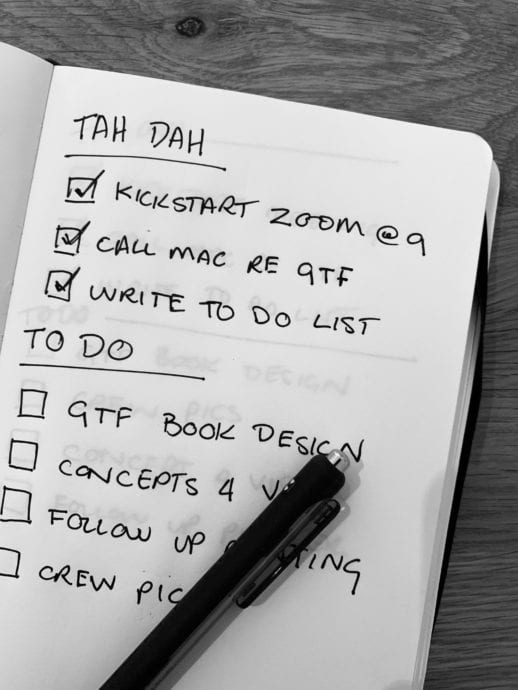 TAH DAH
KICKSTART ZOOM @ 9
CALL MAC RE GTF
WRITE TO DO LIST
TO DO
GTF BOOK DESIGN
CONCEPTS 4
FOLLOW UP
CREW